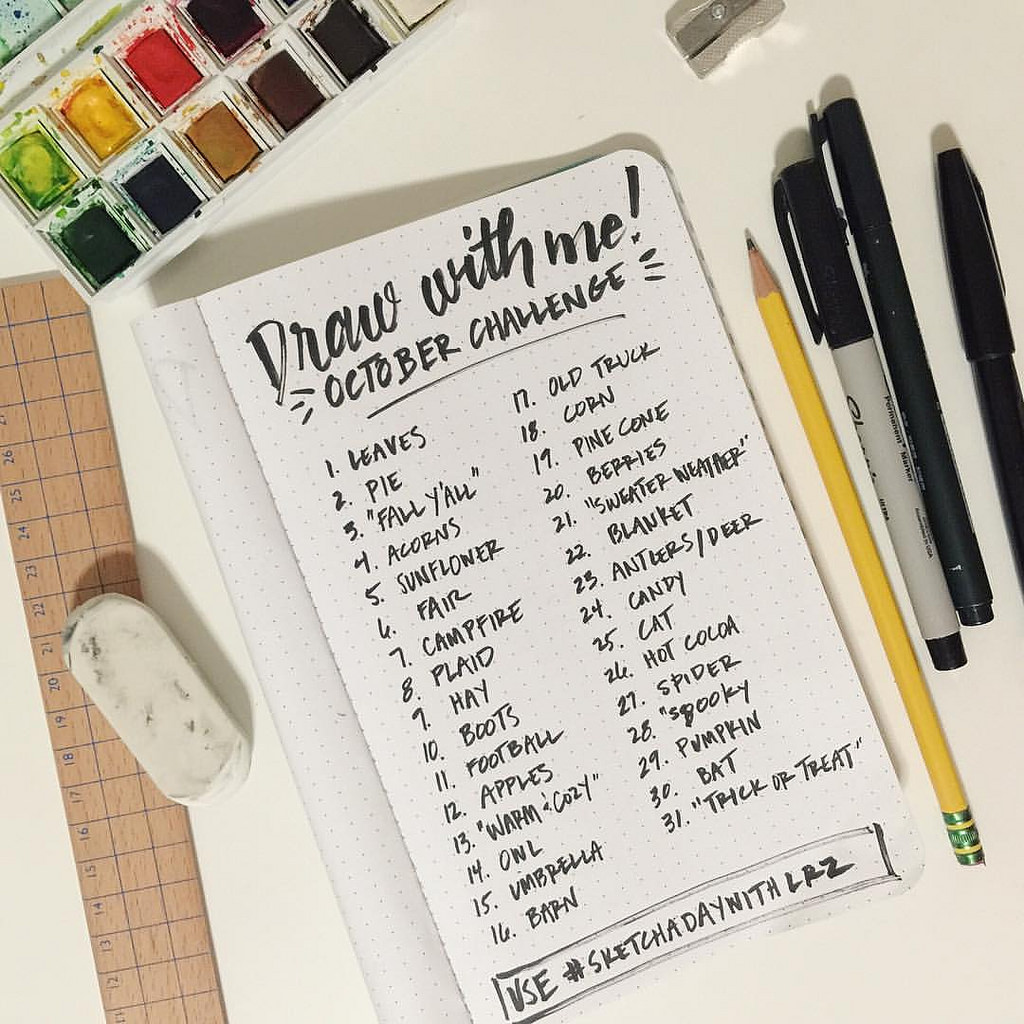 Draw with me!
OCTOBER CHALLENGE
1. LEAVES
2. PIE
3. "FALL Y'ALL"
4. ACORNS
5. SUNFLOWER
6. FAIR
7. CAMPFIRE
8. PLAID
9. HAY
10. BOOTS
11. FOOTBALL
12. APPLES
13. "WARM & COZY"
14. OWL
15. UMBRELLA
16. BARN
17. OLD TRUCK
18. CORN
19. PINE CONE
20. BERRIES
21. "SWEATER WEATHER"
22. BLANKET
23. ANTLERS/DEER
24. CANDY
25. CAT
26. HOT COCOA
27. SPIDER
28. "SPOOKY
29. PUMPKIN
30. BAT
31. "TRICK OR TREAT"
USE #SKETCHADAYWITHLRZ
26
25
24
23
22
21
20
19
18
17
16
15
14
13
12
11
Sharpie
Permanent Marker